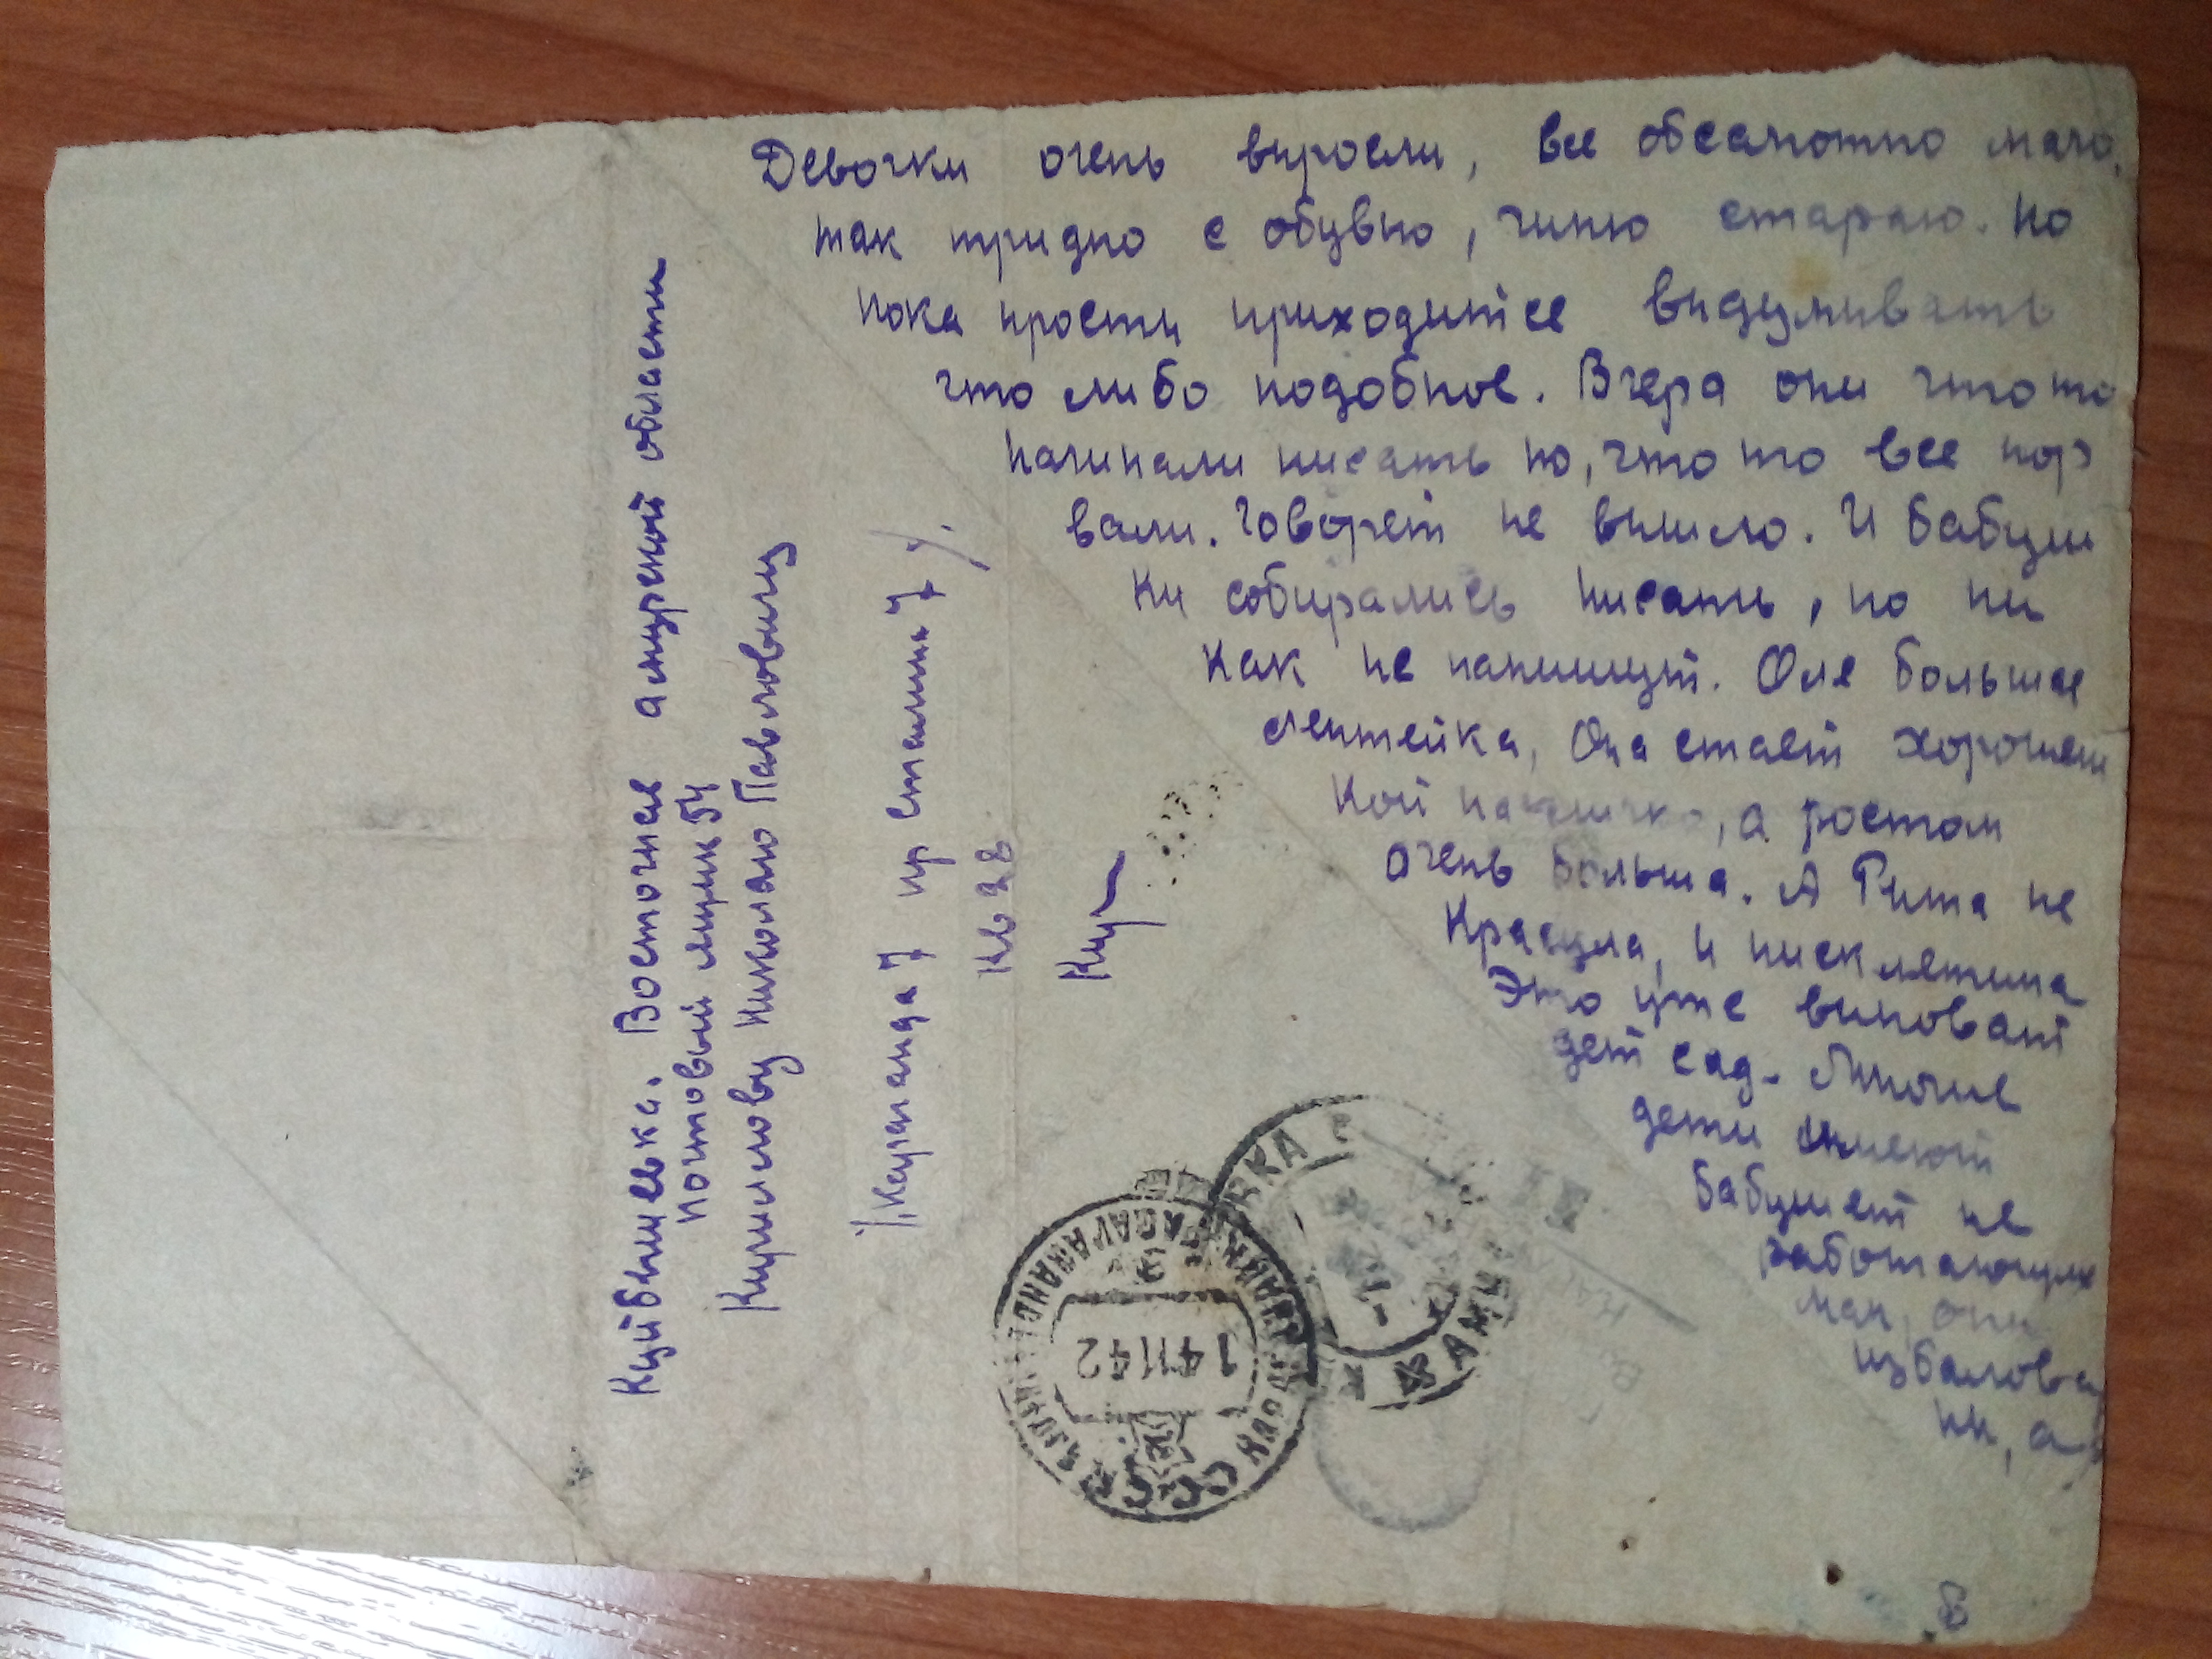 Девочки очень выросли, все обсалютно мало,
так тридно с обувью, чиню стараю. Но
пока прости приходитсе видумивать
что либо подобное. Вчера они что то
начинали писать но, что то все пор
вали. Говорет не вышло. И бабуш
ки собирались писать, но ни
как не напишут. Оле больше
лентейка, Она стает хорошень
кой, а ростом
очень больша. А Рита не
Красула, и писклятина
Это уже виноват
дет сад. Многие
дети имеют
бабушет не
работающих
мам, они
избалова
ни, а
Куйбышевка. Восточнае амурской области
Почтовый ящик 54
Кирилову Николаю Павловичу
Караганда 7 пр сталина 7
кв 28
Кир
СССР
КАРАГАНДА
14 11 42
8